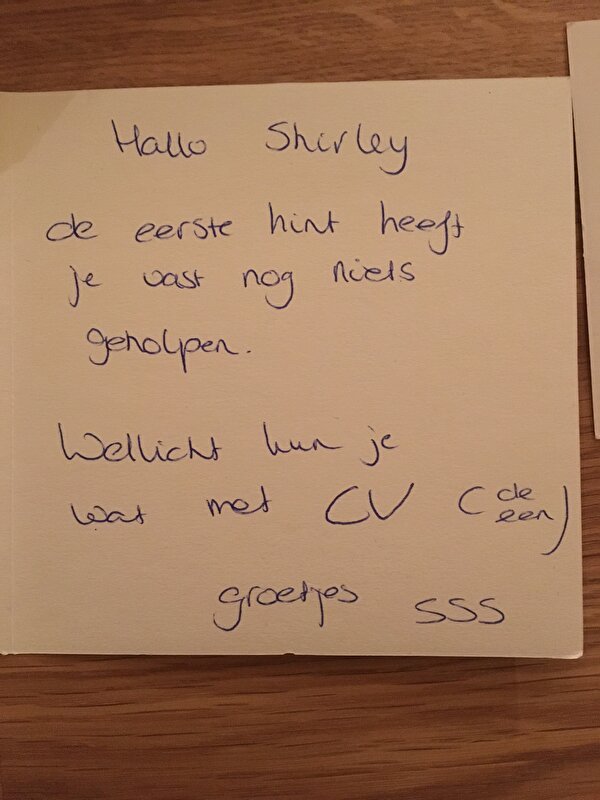 Hallo Shirley
de eerste hint heeft
je vast nog niets
geholpen.
Wellicht kun je
wat met CV (de een)
groetjes SSS